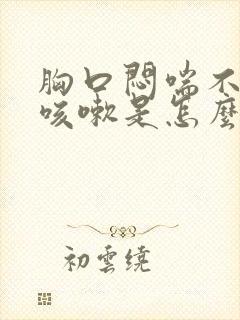 胸口悶喘不
咳嗽是怎麼
初雲繞